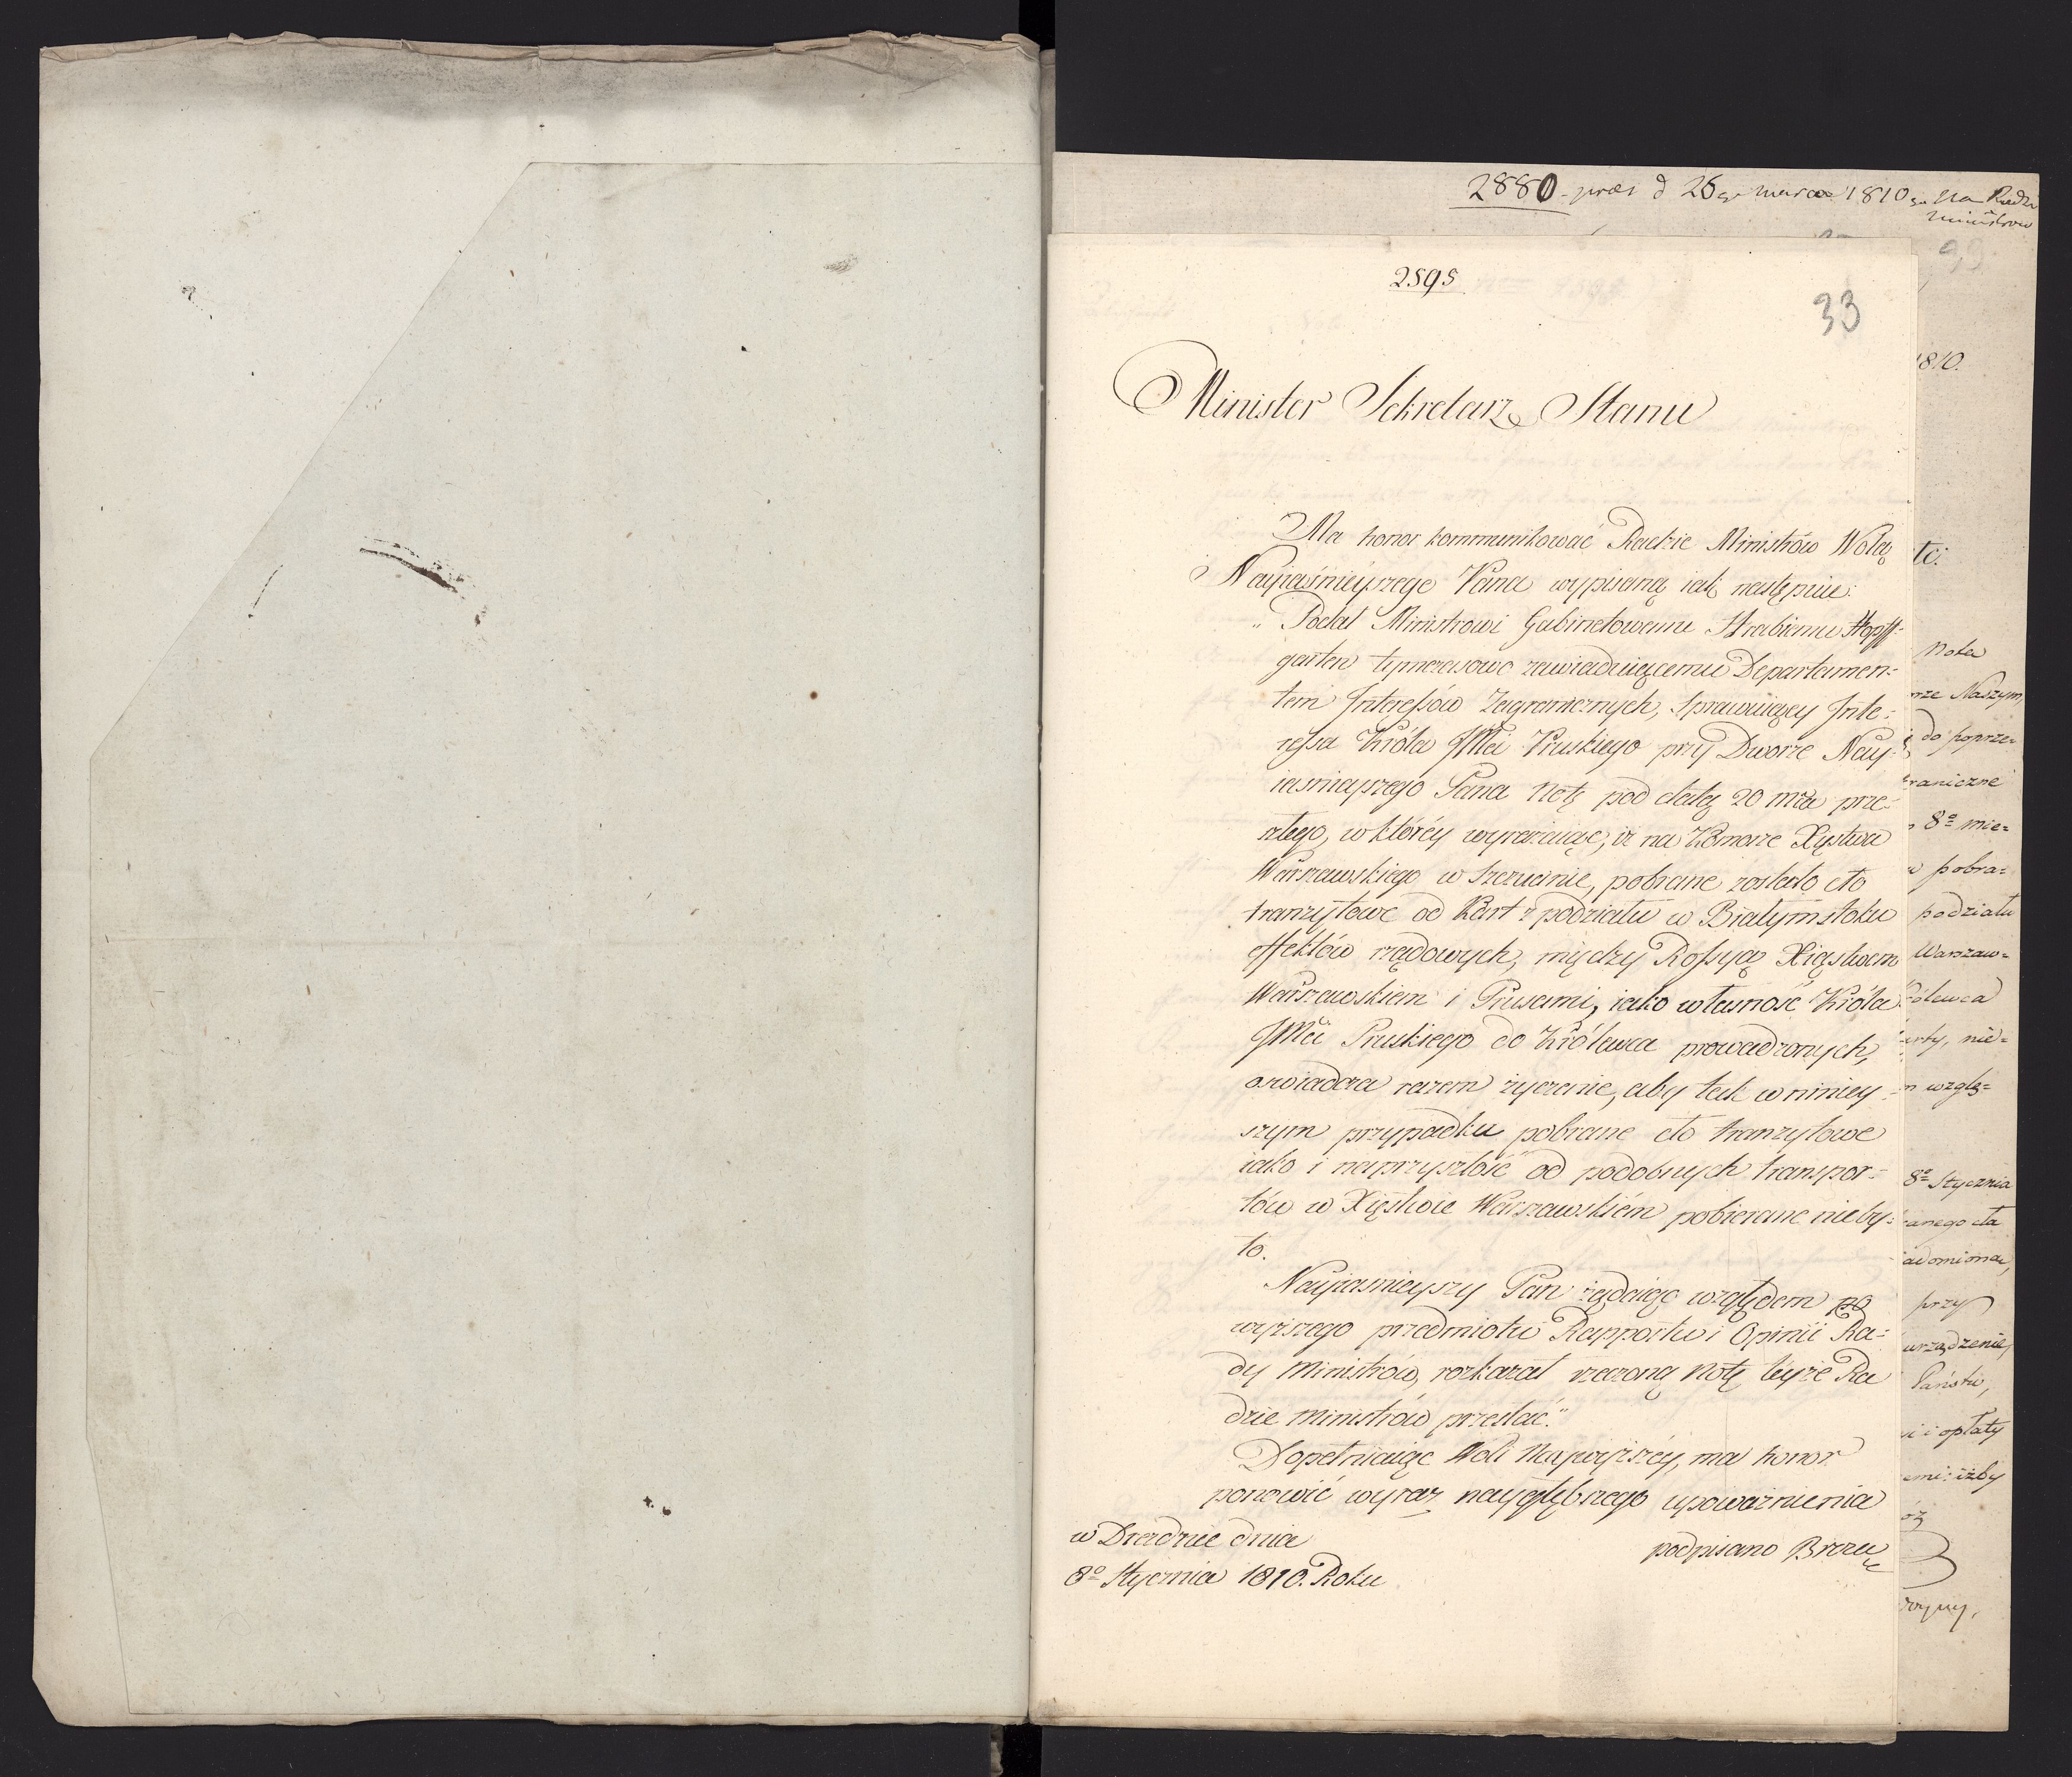 2880 præs d 26go marca 1810 go Na Radzie
Ministrow
2595
33
Minister Sekretarz Stanu
Ma honor kommunikować Radzie Ministrów Wolą
Nayiaśnieyszego Pana wypisaną iak następuie:
„Podał Ministrowi Gabinetowemu Hrabiemu Hopff-
garten tymczasowo zawiaduiącemu Departamen-
tem Interessów Zagranicznych, Sprawuiący Inte-
ressa Króla JMci Pruskiego przy Dworze Nay-
iasnieyszego Pana Notę pod datą 20 mca prze-
szłego, w któréy wyrażaiąc, iż na Komorze Xięstwa
Warszawskiego w Szczucinie, pobrane zostało cło
tranzytowe od Kart z podziału w Białymstoku
effektów rządowych, między Rossyą Xięstwem
Warszawskiem i Prusami, iako własność Króla
JMci Pruskiego do Królewca prowadzonych,
oswiadcza razem życzenie, aby tak w niniey-
szym przypadku pobrane cło tranzytowe
iako i naprzyszłość od podobnych transpor-
tów w Xięstwie Warszawskiém pobierane nieby-
ło.
Nayiasnieyszy Pan żądaiąc względem po
wyższego przedmiotu Rapportu i Opinii Ra-
dy Ministrów, rozkazał rzeczoną Notę teyże Ra
dzie Ministrów przesłać."
Dopełniaiąc Woli Naywyższéy, ma honor
ponowić wyraz naygłębszego upoważnienia
w Dreźdnie dnia
8o Stycznia 1810. Roku
podpisano Breza
1810.
Nota
Naszym,
do poprze-
8o mie-
pobra-
podziału
Warszaw-
wzglę-
8o Stycznia
cła
przy
urządzenie,
Państw,
i opłaty
iżby